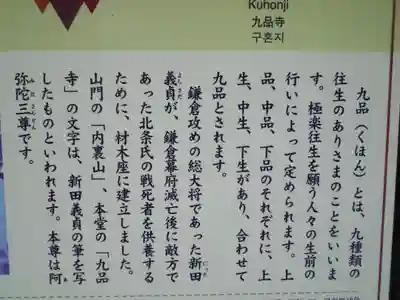 Kuhonji
九品寺
구혼지
九品(くほん)とは、九種類の
往生のありさまのことをいいま
す。極楽往生を願う人々の生前の
行いによって定められます。上
品、中品、下品のそれぞれに、上
生、中生、下生があり、合わせて
九品とされます。
鎌倉攻めの総大将であった新田
義貞が、鎌倉幕府滅亡後に敵方で
あった北条氏の戦死者を供養する
ために、材木座に建立しました。
山門の「内裏山」、本堂の「九品
寺」の文字は、新田義貞の筆を写
したものといわれます。本尊は阿
弥陀三尊です。